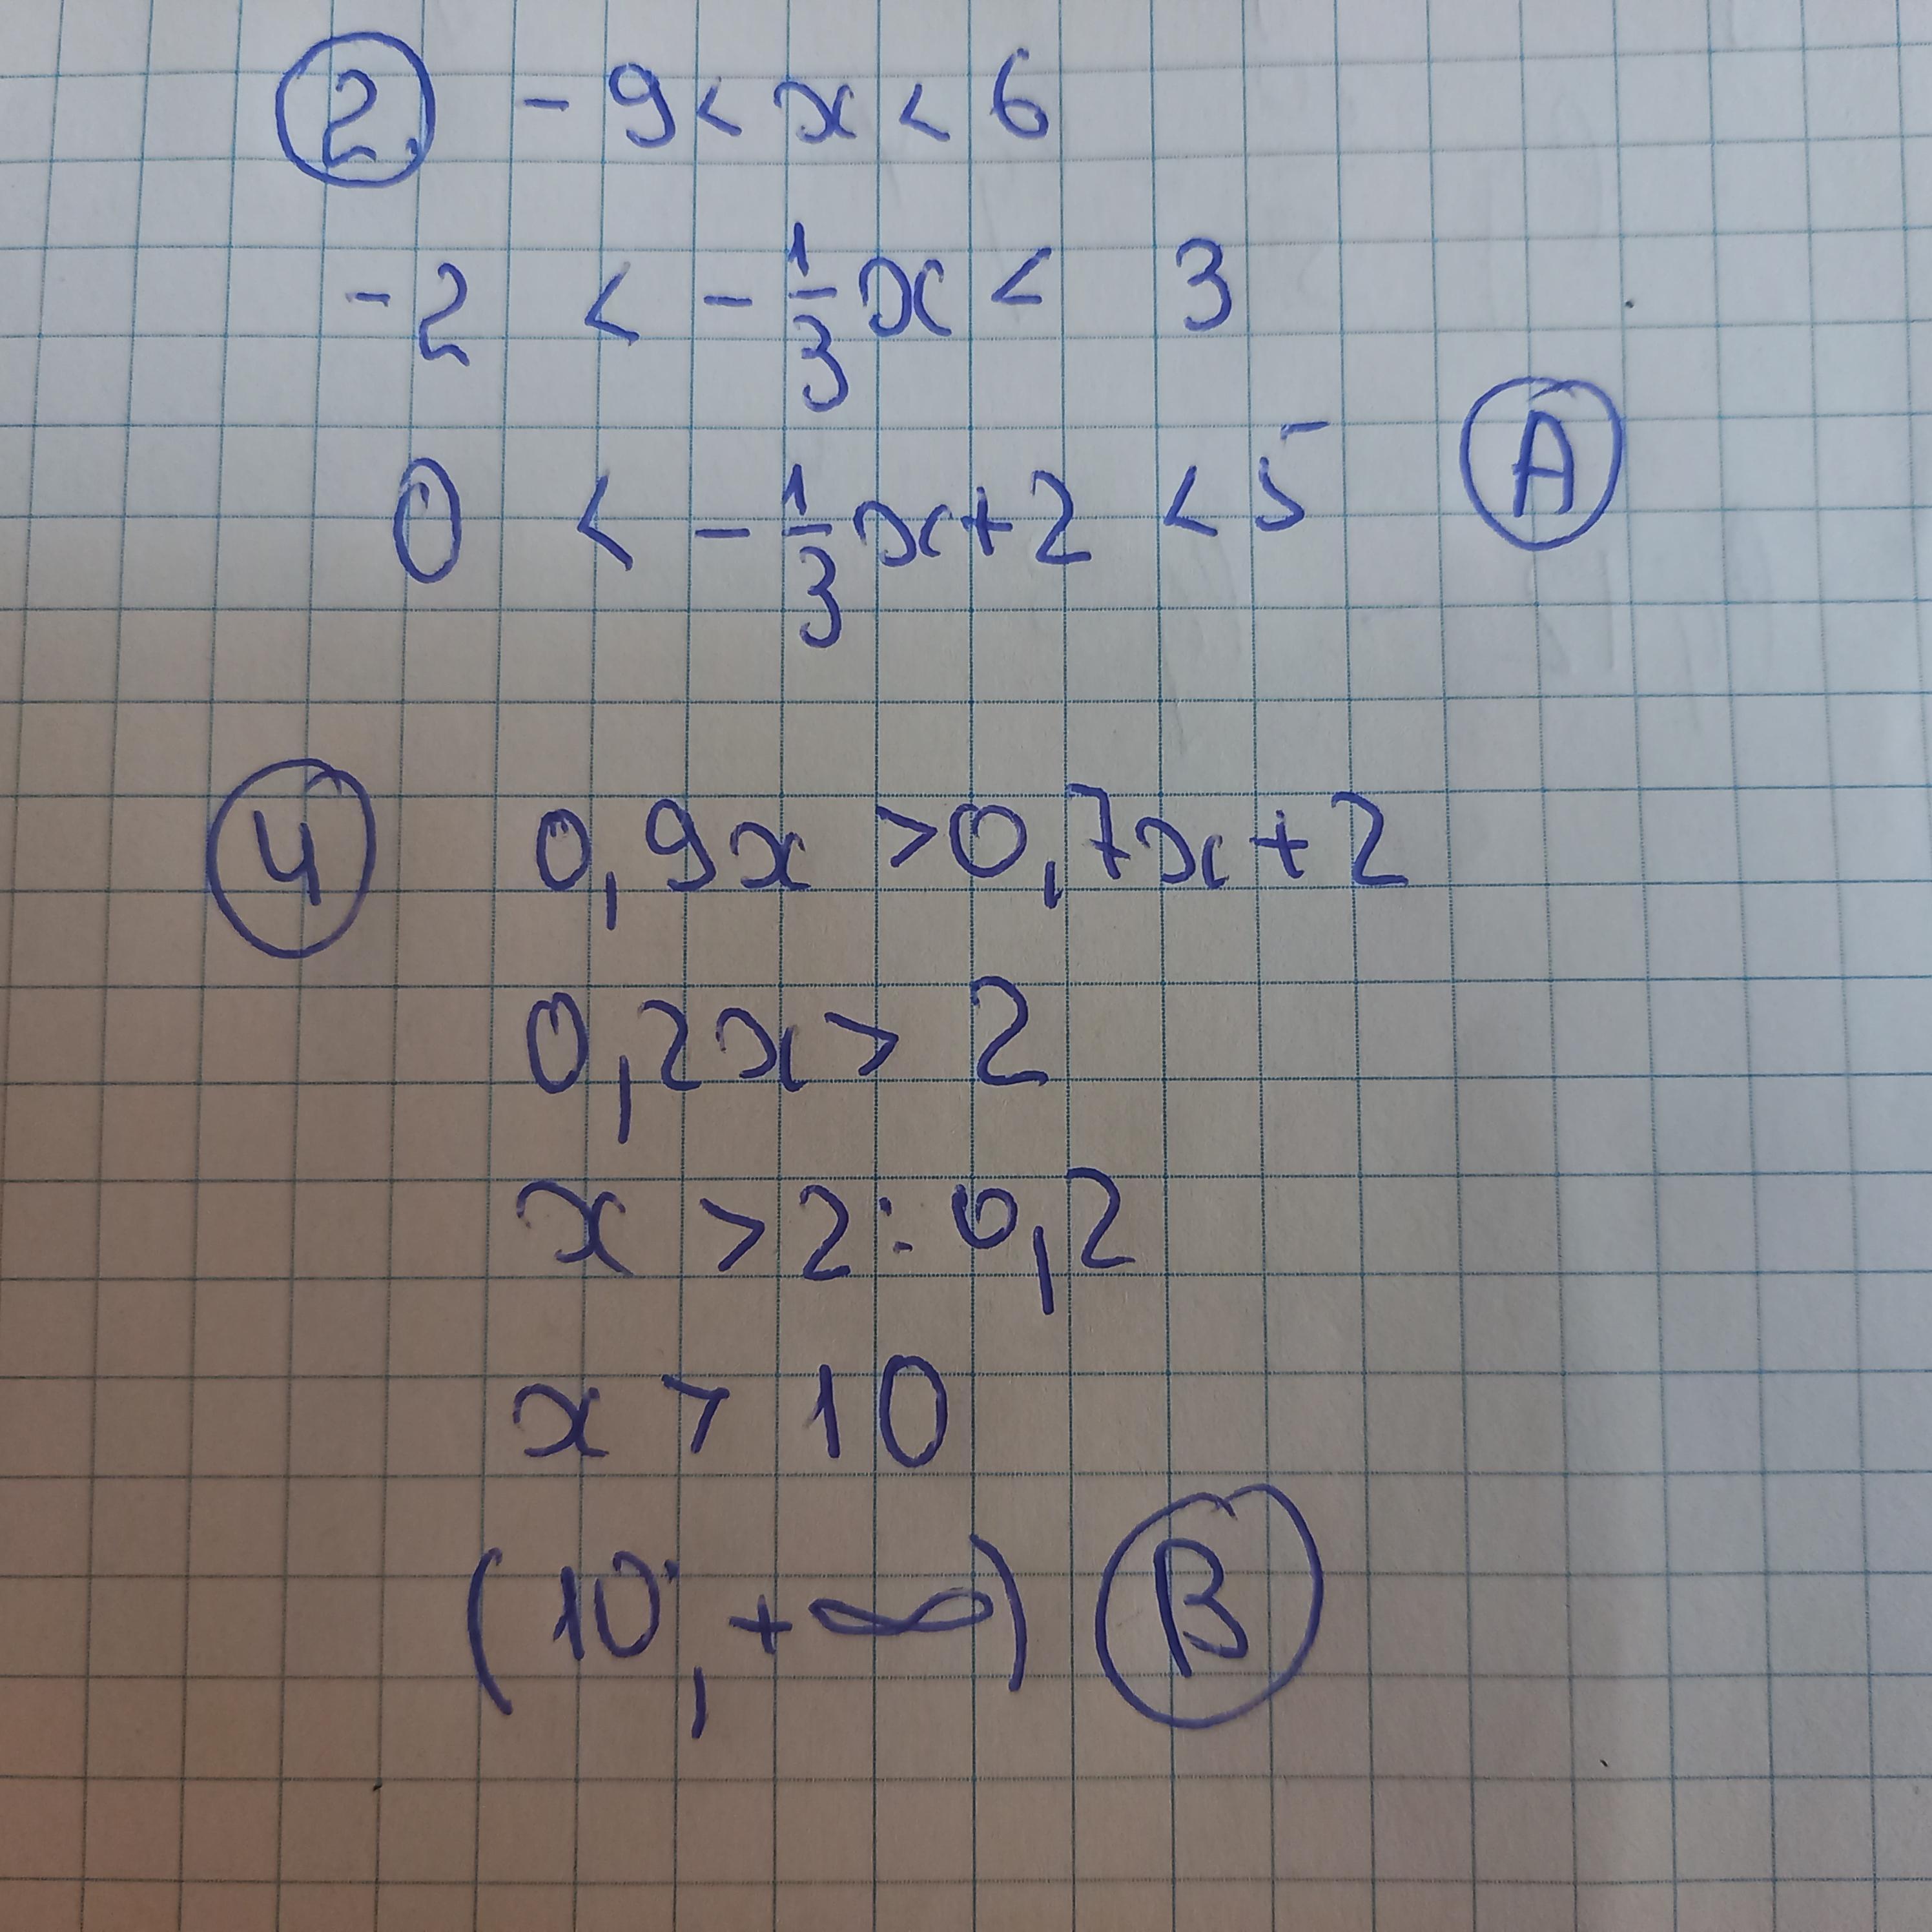 2. - 9 < x < 6
-2 < - 1/3 x < 3
0 < - 1/3 x + 2 < 5 A
4 0,9x > 0,7x + 2
0,2x > 2
x > 2 : 0,2
x > 10
(10; +∞) B